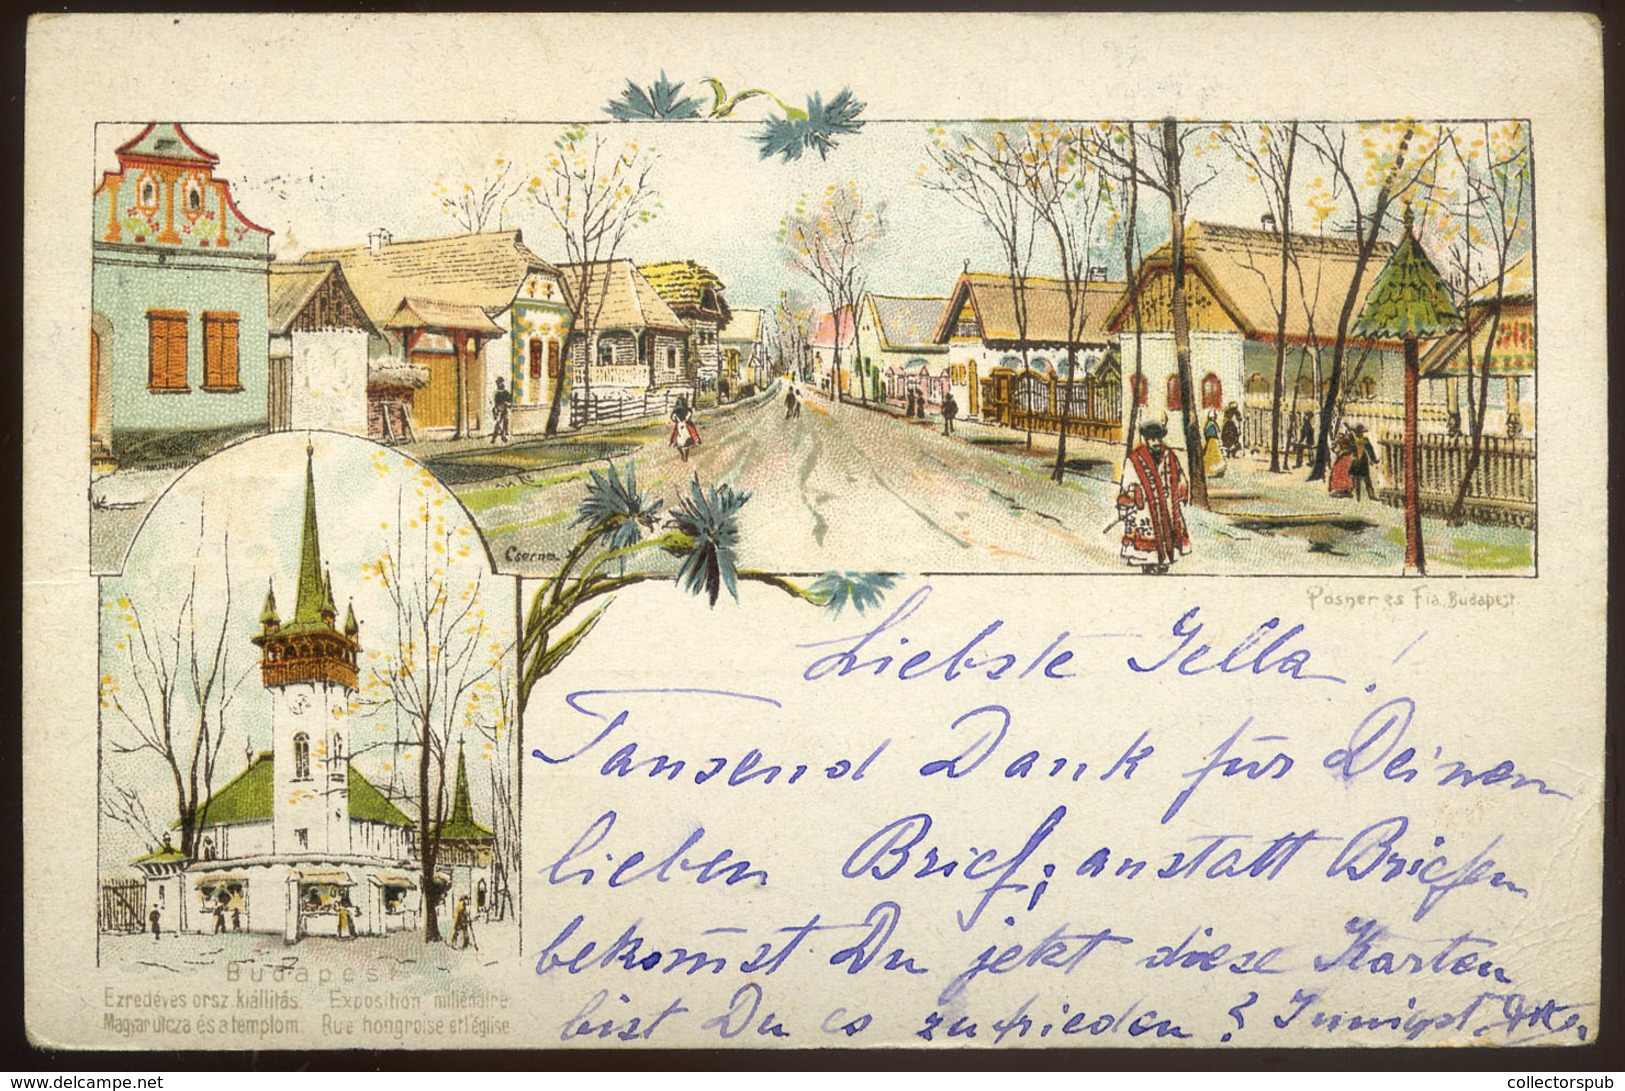 Cserna
Posner és Fia, Budapest.
Liebste Jella!
Tausend Dank für Deinen
lieben Brief; anstatt Briefen
bekom̄st Du jetzt diese Karten
bist Du es zufrieden? Innigst
Budapest
Ezredéves orsz. kiállítás. Exposition millénaire
Magyar utcza és a templom. Rue hongroise et l'église
collectorspub